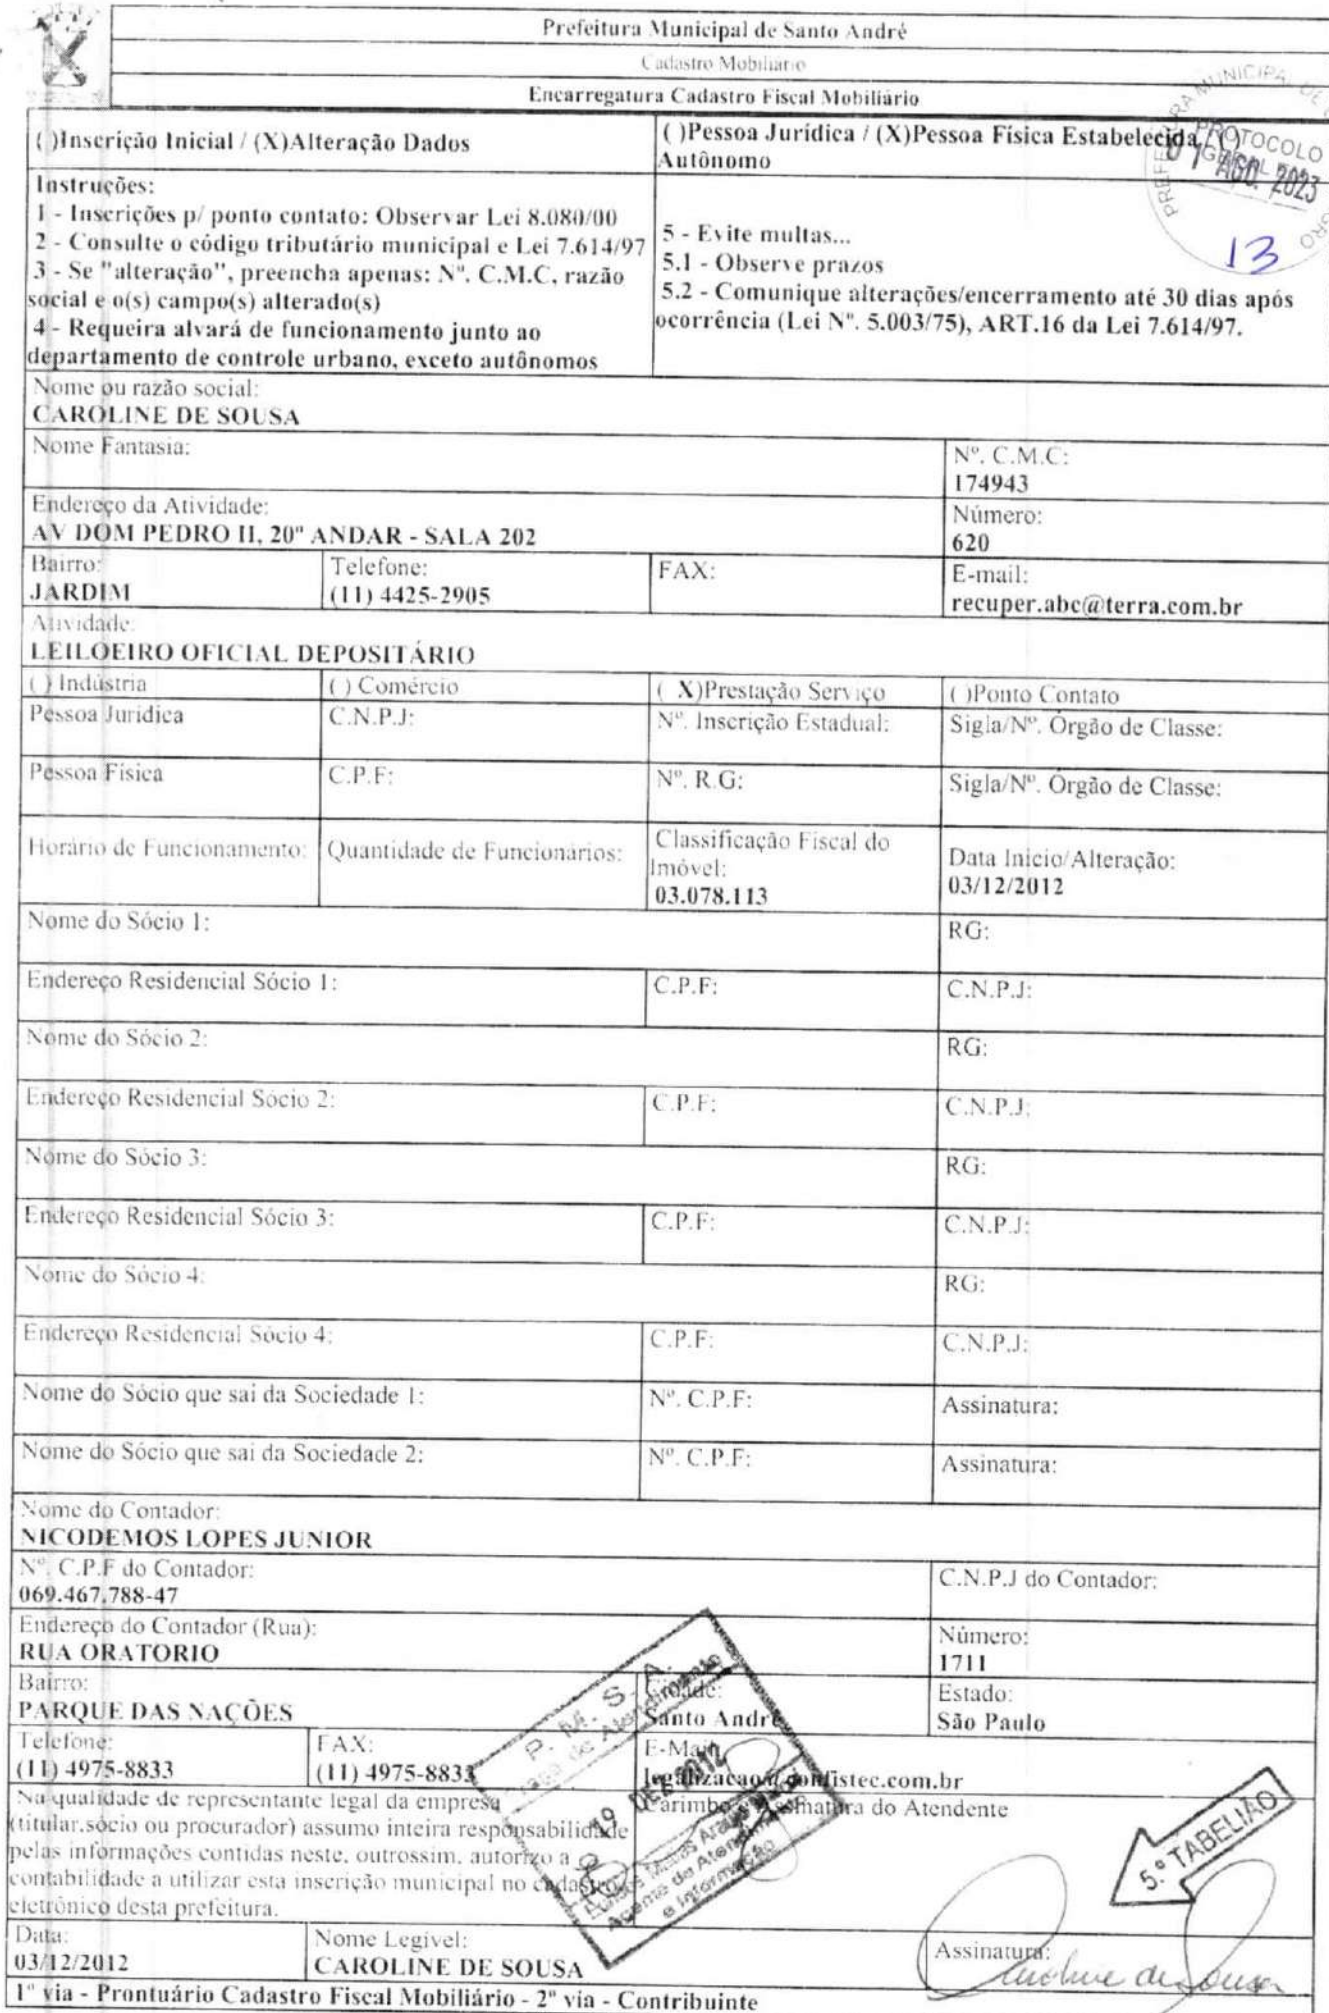 Prefeitura Municipal de Santo André
Cadastro Mobiliário
Encarregatura Cadastro Fiscal Mobiliário
( )Inscrição Inicial / (X)Alteração Dados
( )Pessoa Jurídica / (X)Pessoa Física Estabelecida / ( )
Autônomo
MUNICIPAL DE
PROTOCOLO
GERAL
01 AGO. 2023
13
Instruções:
1 - Inscrições p/ ponto contato: Observar Lei 8.080/00
2 - Consulte o código tributário municipal e Lei 7.614/97
3 - Se "alteração", preencha apenas: Nº. C.M.C, razão
social e o(s) campo(s) alterado(s)
4 - Requeira alvará de funcionamento junto ao
departamento de controle urbano, exceto autônomos
5 - Evite multas...
5.1 - Observe prazos
5.2 - Comunique alterações/encerramento até 30 dias após
ocorrência (Lei Nº. 5.003/75), ART.16 da Lei 7.614/97.
Nome ou razão social:
CAROLINE DE SOUSA
Nome Fantasia:
Nº. C.M.C:
174943
Endereço da Atividade:
AV DOM PEDRO II, 20º ANDAR - SALA 202
Número:
620
Bairro:
JARDIM
Telefone:
(11) 4425-2905
FAX:
E-mail:
recuper.abc@terra.com.br
Atividade:
LEILOEIRO OFICIAL DEPOSITÁRIO
( ) Indústria
( ) Comércio
( X)Prestação Serviço
( )Ponto Contato
Pessoa Jurídica
C.N.P.J:
Nº. Inscrição Estadual:
Sigla/Nº. Órgão de Classe:
Pessoa Física
C.P.F:
Nº. R.G:
Sigla/Nº. Órgão de Classe:
Horário de Funcionamento:
Quantidade de Funcionários:
Classificação Fiscal do
Imóvel:
03.078.113
Data Início/Alteração:
03/12/2012
Nome do Sócio 1:
RG:
Endereço Residencial Sócio 1:
C.P.F:
C.N.P.J:
Nome do Sócio 2:
RG:
Endereço Residencial Sócio 2:
C.P.F:
C.N.P.J:
Nome do Sócio 3:
RG:
Endereço Residencial Sócio 3:
C.P.F:
C.N.P.J:
Nome do Sócio 4:
RG:
Endereço Residencial Sócio 4:
C.P.F:
C.N.P.J:
Nome do Sócio que sai da Sociedade 1:
Nº. C.P.F:
Assinatura:
Nome do Sócio que sai da Sociedade 2:
Nº. C.P.F:
Assinatura:
Nome do Contador:
NICODEMOS LOPES JUNIOR
Nº. C.P.F do Contador:
069.467.788-47
C.N.P.J do Contador:
Endereço do Contador (Rua):
RUA ORATORIO
Número:
1711
Bairro:
PARQUE DAS NAÇÕES
Cidade:
Santo André
Estado:
São Paulo
Telefone:
(11) 4975-8833
FAX:
(11) 4975-8833
E-Mail:
legalizacao@confistec.com.br
P. M. S. A.
de Atendimento
19 DEZ 2012
Agente de Atendimento
e Informação
Na qualidade de representante legal da empresa
(titular,sócio ou procurador) assumo inteira responsabilidade
pelas informações contidas neste, outrossim, autorizo a
contabilidade a utilizar esta inscrição municipal no cadastro
eletrônico desta prefeitura.
Carimbo e Assinatura do Atendente
5.º TABELIÃO
Data:
03/12/2012
Nome Legível:
CAROLINE DE SOUSA
Assinatura:
Caroline de Sousa
1ª via - Prontuário Cadastro Fiscal Mobiliário - 2ª via - Contribuinte